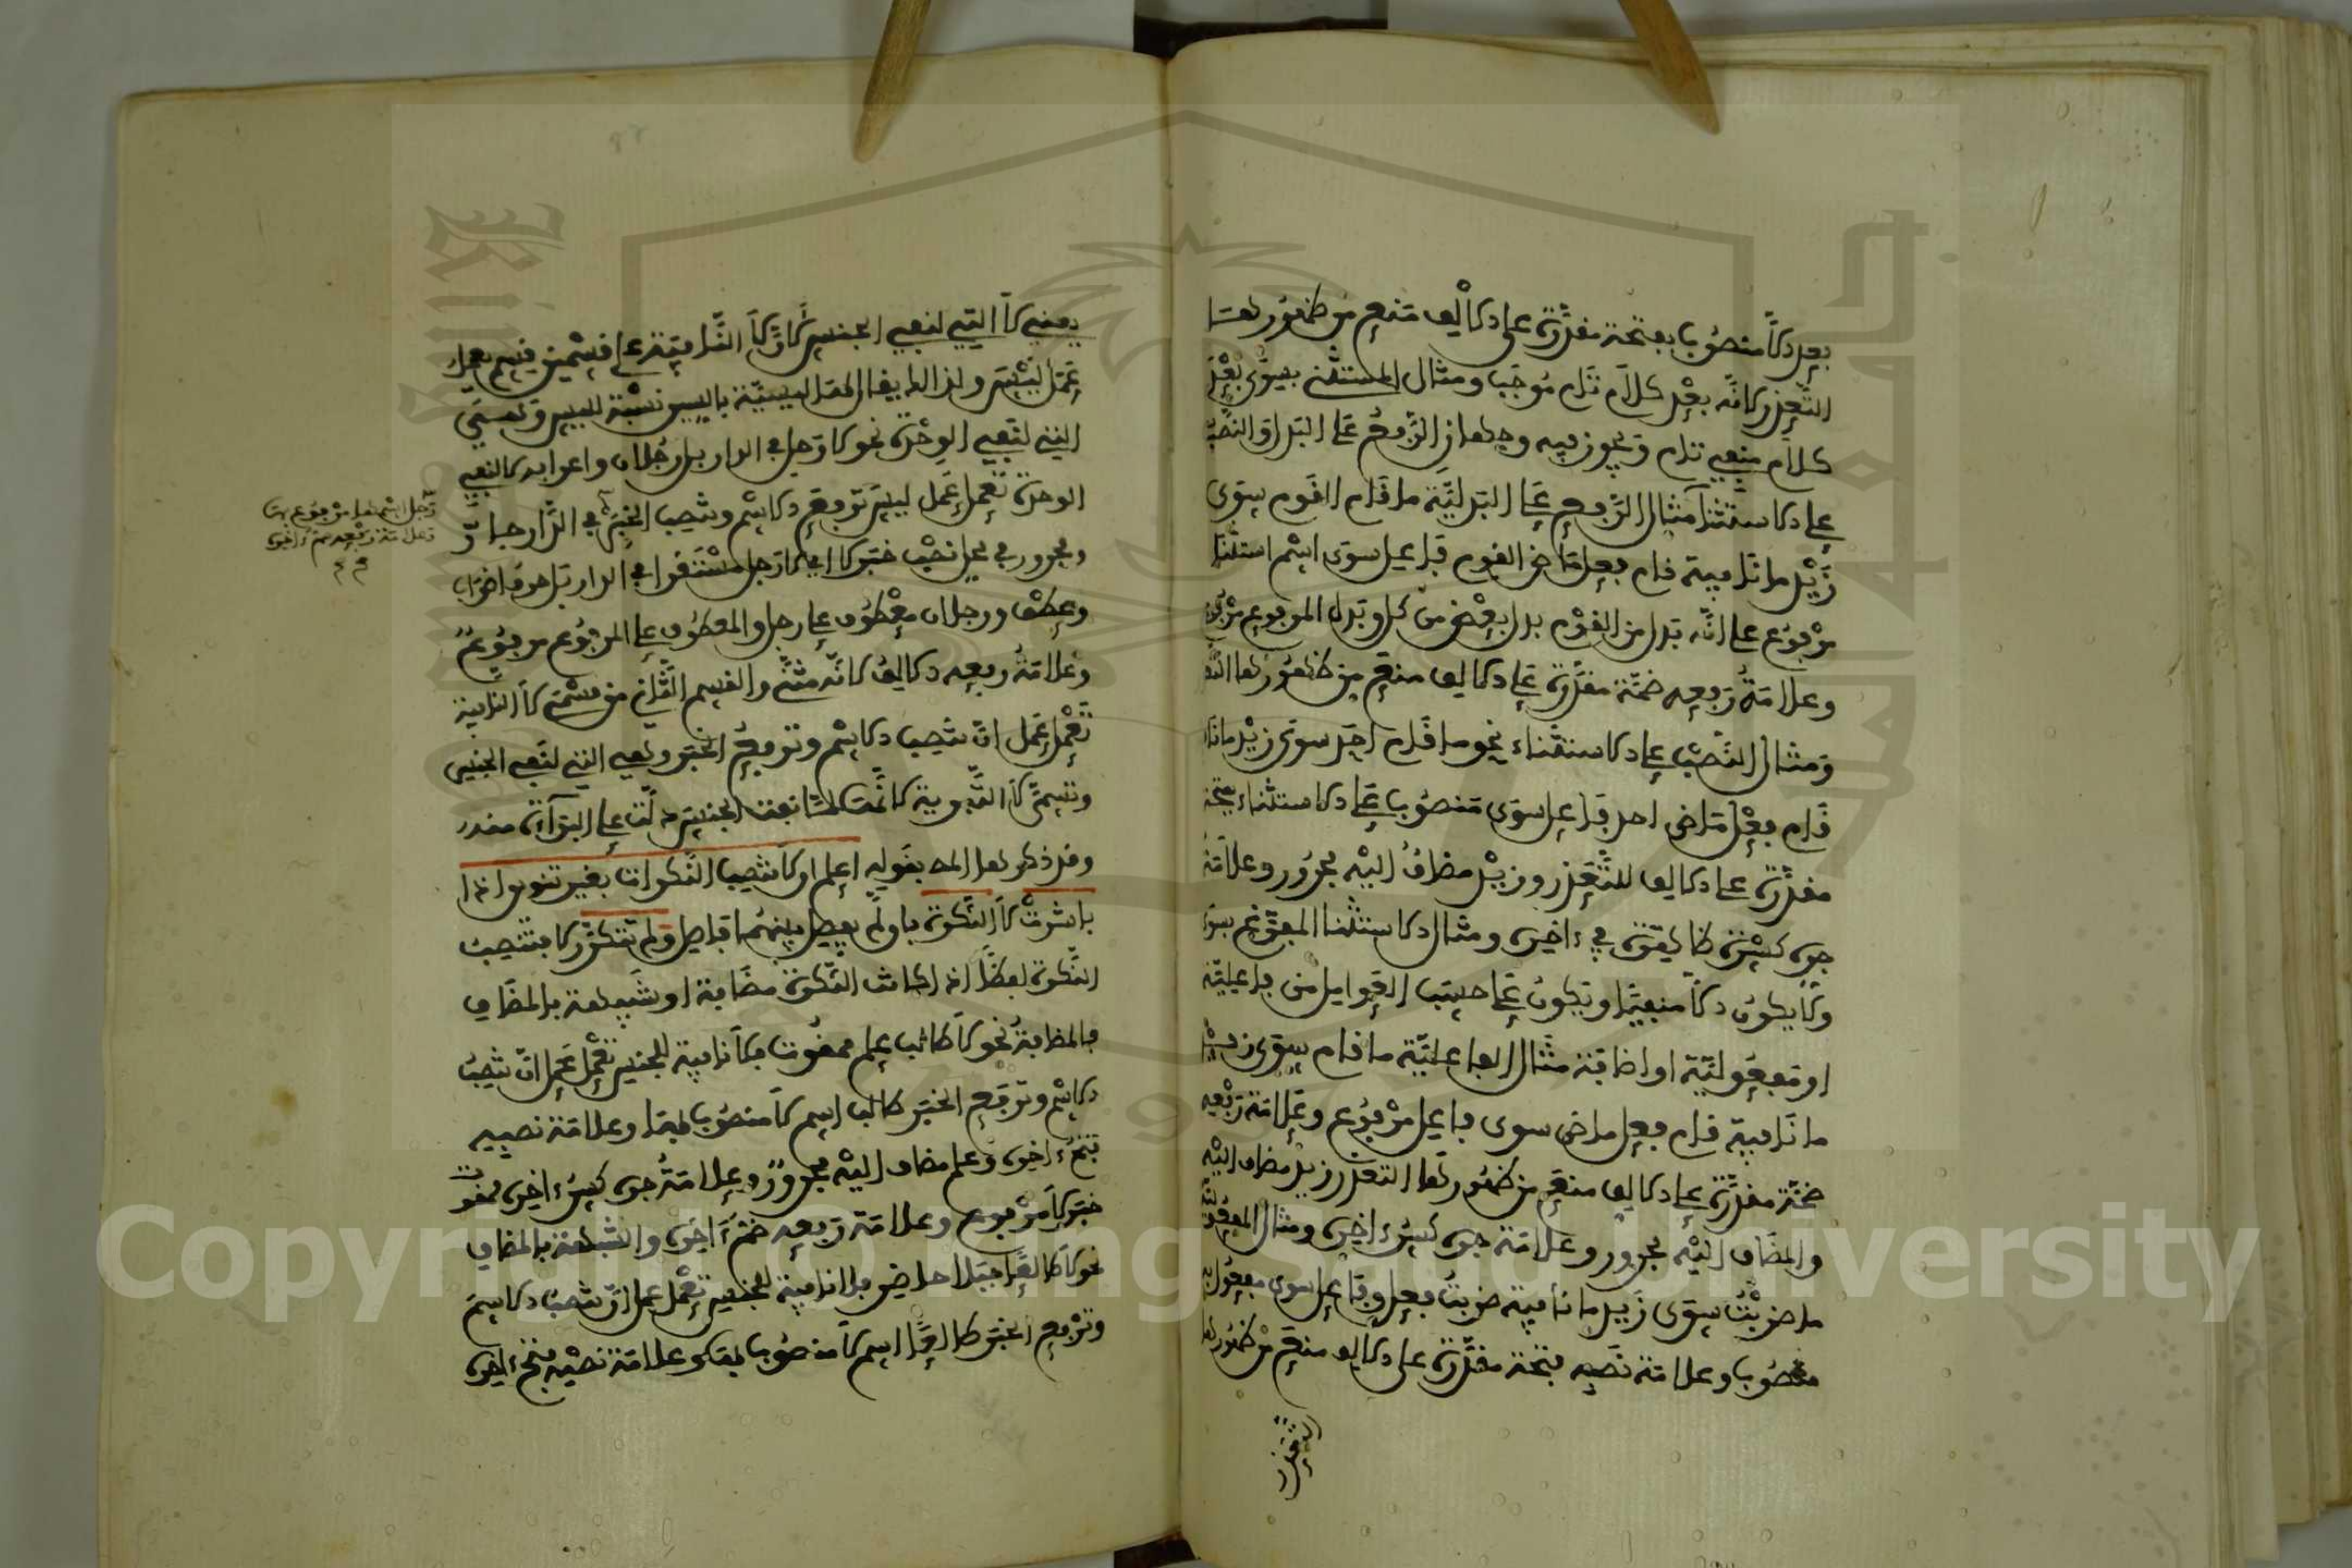 بعد إلا منصوب بفتحة مقدرة على الألف منع من ظهورها
التعذر لأنه بعد كلام تام موجب ومثال المستثنى بسوى بعد
كلام منفي تام ويجوز فيه وجهان الرفع على البدل والنصب
على الاستثنا مثال الرفع على البدلية ما قام القوم سوى
زيد ما نافية قام فعل ماض القوم فاعل سوى اسم استثنا
مرفوع على انه بدل من القوم بدل بعض من كل وبدل المرفوع مرفوع
وعلامة رفعه ضمة مقدرة على الالف منع من ظهورها التعذر
ومثال النصب على الاستثناء نحو ما قام احد سوى زيد ما نافية
قام فعل ماض احد فاعل سوى منصوب على الاستثناء بفتحة
مقدرة على الالف للتعذر وزيد مضاف اليه مجرور وعلامة
جره كسرة ظاهرة في ءاخره ومثال الاستثنا المفرغ بسوى
ولا يكون الا منفيا ويكون على حسب العوامل من فاعلية
او مفعولية او اضافة مثال الفاعلية ما قام سوى زيد
ما نافية قام فعل ماض سوى فاعل مرفوع وعلامة رفعه
ضمة مقدرة على الالف منع من ظهورها التعذر زيد مضاف اليه
والمضاف اليه مجرور وعلامة جره كسرة ءاخره ومثال المفعولية
ما ضربت سوى زيد ما نافية ضربت فعل وفاعل سوى مفعول به
منصوب وعلامة نصبه فتحة مقدرة على الالف منع من ظهورها
التعذر
يعني لا التي لنفي الجنس لان لا النافية على قسمين قسم يعمل
عمل ليس
التي لنفي الوحدة نحو لا رجل في الدار بل رجلان واعرابه لا لنفي
الوحدة تعمل عمل ليس ترفع الاسم وتنصب الخبر في الدار جار
رجل اسمها مرفوع بها
وعلامة رفعه ضم ءاخره
ومجرور في محل نصب خبر لا اي لا رجل مستقرا في الدار بل حرف اضراب
وعطف ورجلان معطوف على رجل والمعطوف على المرفوع مرفوع
وعلامة رفعه الالف لانه مثنى والقسم الثاني من قسمي لا النافية
تعمل عمل ان تنصب الاسم وترفع الخبر وهي التي لنفي الجنس
وتسمى لا التبرية لانها لما نفت الجنس دلت على البراءة منه
وقد ذكرها المص بقوله اعلم ان لا تنصب النكرات بغير تنوين اذا
باشرت لا النكرة بان لم يفصل بينهما فاصل ولم تتكرر لا فتنصب
النكرة لفظا اذا كانت النكرة مضافة او شبيهة بالمضاف
فالمضافة نحو لا طالب علم ممقوت فلا نافية للجنس تعمل عمل ان تنصب
الاسم وترفع الخبر طالب اسم لا منصوب لفظا وعلامة نصبه
فتح ءاخره وعلم مضاف اليه مجرور وعلامة جره كسر ءاخره ممقوت
خبر لا مرفوع وعلامة رفعه ضم ءاخره والشبيهة بالمضاف
نحو لا طالعا جبلا حاضر فلا نافية للجنس تعمل عمل ان تنصب الاسم
وترفع الخبر طالعا اسم لا منصوب بها وعلامة نصبه فتح ءاخره
Copyright © King Saud University